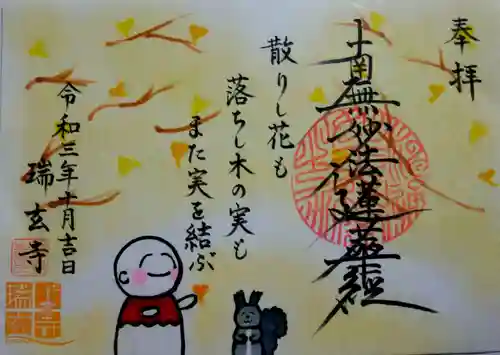 奉拝
南無妙法蓮華経
散りし花も
落ちし木の実も
また実を結ぶ
令和三年十月吉日
瑞玄寺